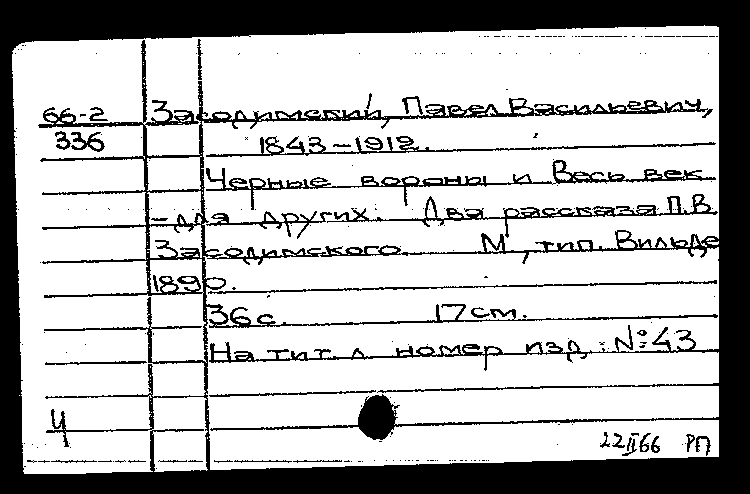 66-2 Засодимский, Павел Васильевич,
336 1843-1912.
Черные вороны и Весь век
- для других. Два рассказа П.В.
Засодимского. М, тип. Вильде
1890.
36 с. 17 см.
На тит. л. номер изд.: №43
Ч
22 II 66 РП